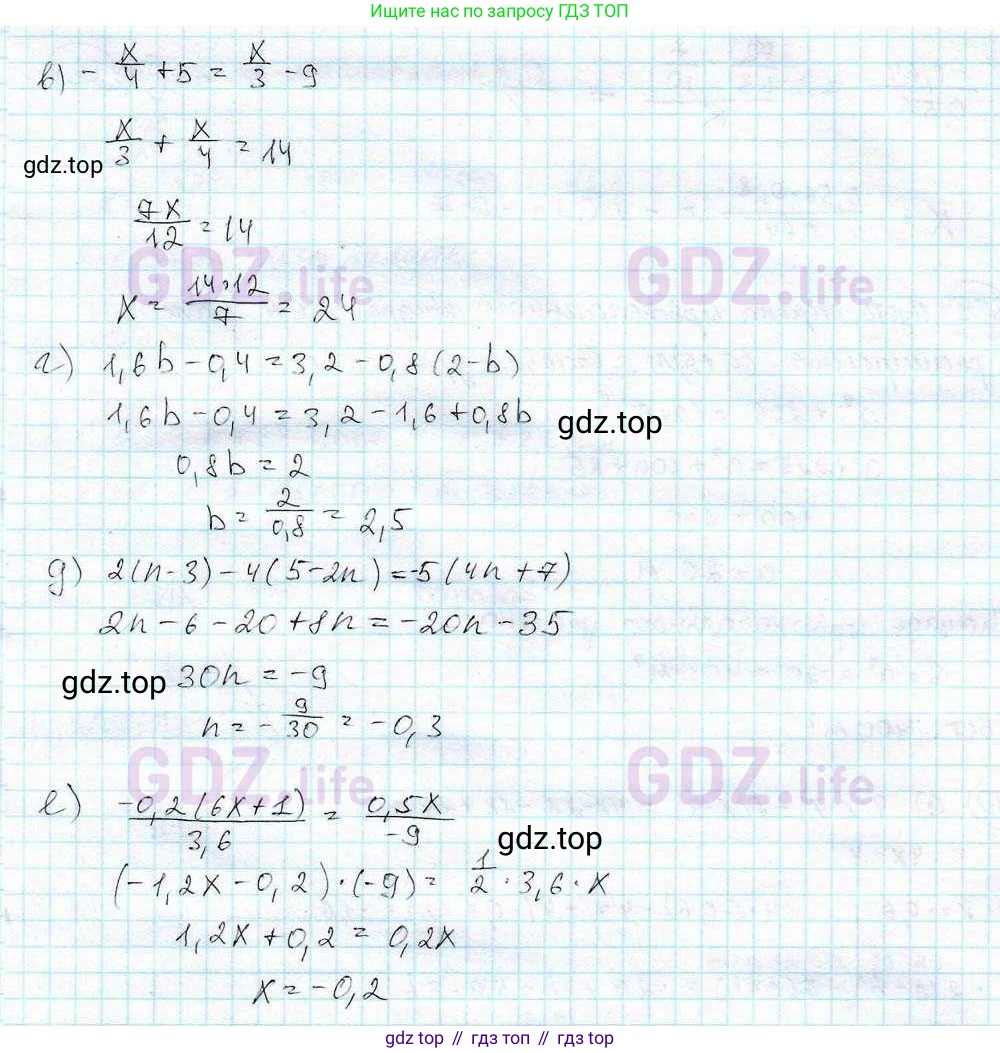 Ищите нас по запросу ГДЗ ТОП
в) - x/4 + 5 = x/3 - 9
x/3 + x/4 = 14
gdz.top
7x/12 = 14
GDZ.life GDZ.life
x = 14·12/7 = 24
г) 1,6b - 0,4 = 3,2 - 0,8(2-b)
1,6b - 0,4 = 3,2 - 1,6 + 0,8b
gdz.top
0,8b = 2
b = 2/0,8 = 2,5
д) 2(n-3) - 4(5-2n) = -5(4n+7)
2n - 6 - 20 + 8n = -20n - 35
gdz.top
30n = -9
n = - 9/30 = -0,3
GDZ.life GDZ.life
е) -0,2(6x+1)/3,6 = 0,5x/-9
gdz.top
(-1,2x - 0,2)·(-9) = 1/2 · 3,6 · x
1,2x + 0,2 = 0,2x
x = -0,2
gdz.top // гдз топ // gdz.top